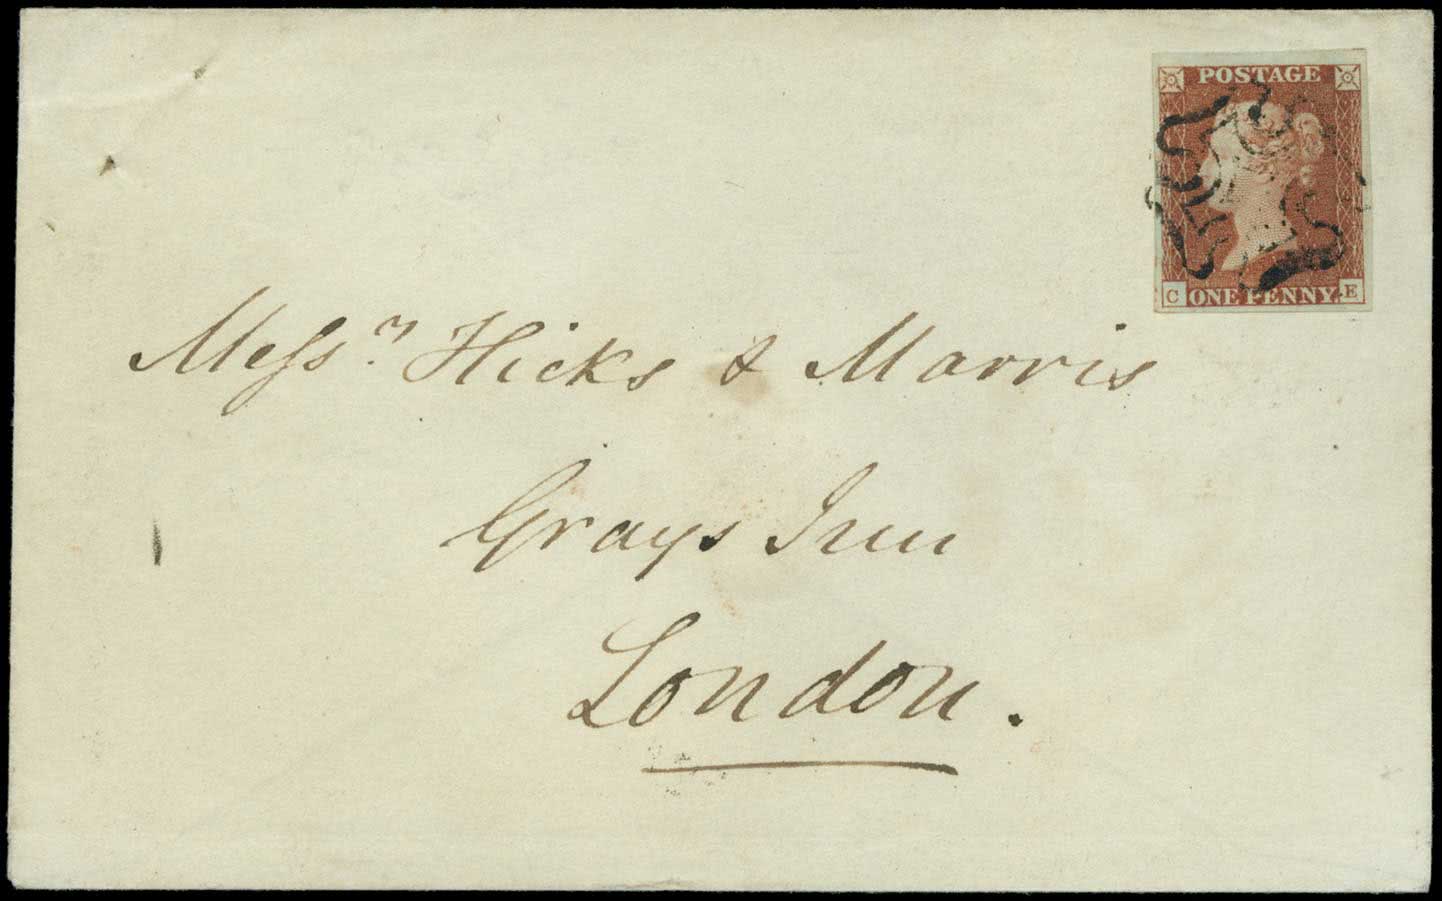 POSTAGE
C ONE PENNY. E
Messrs Hicks & Marris
Grays Inn
London.